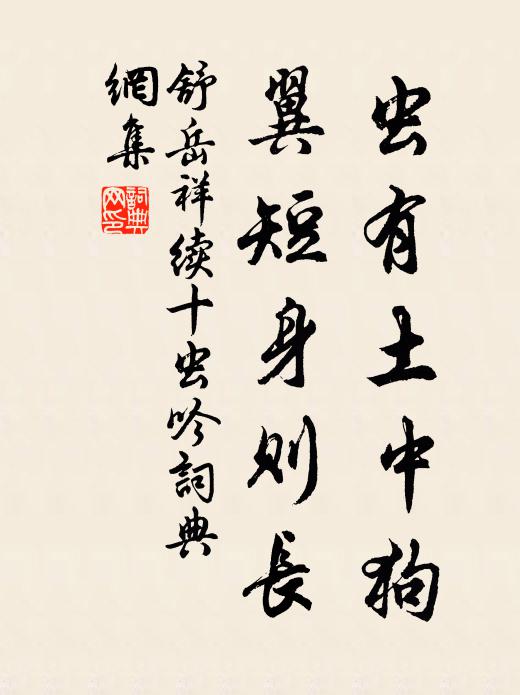 虫有土中狗
翼短身则長
舒岳祥续十虫吟詞典
網集
詞典
网印